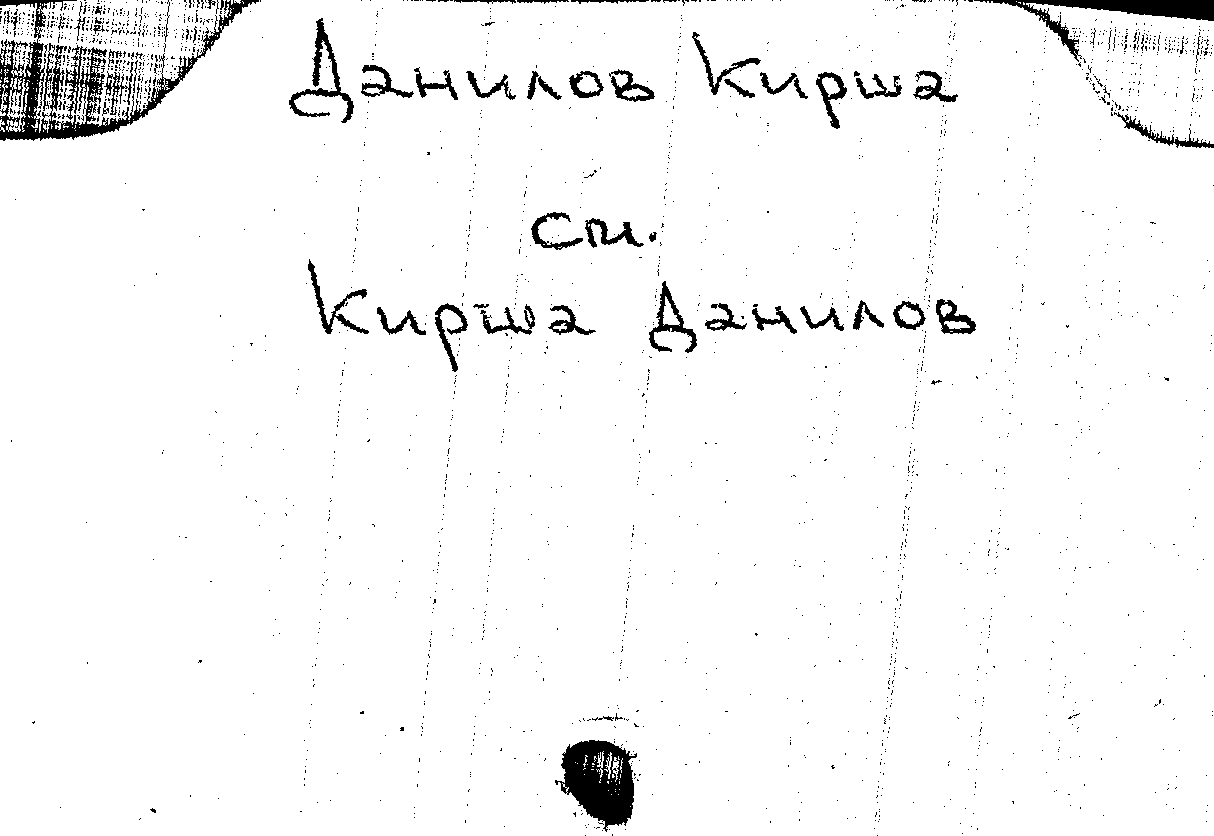 Данилов Кирша
см.
Кирша Данилов